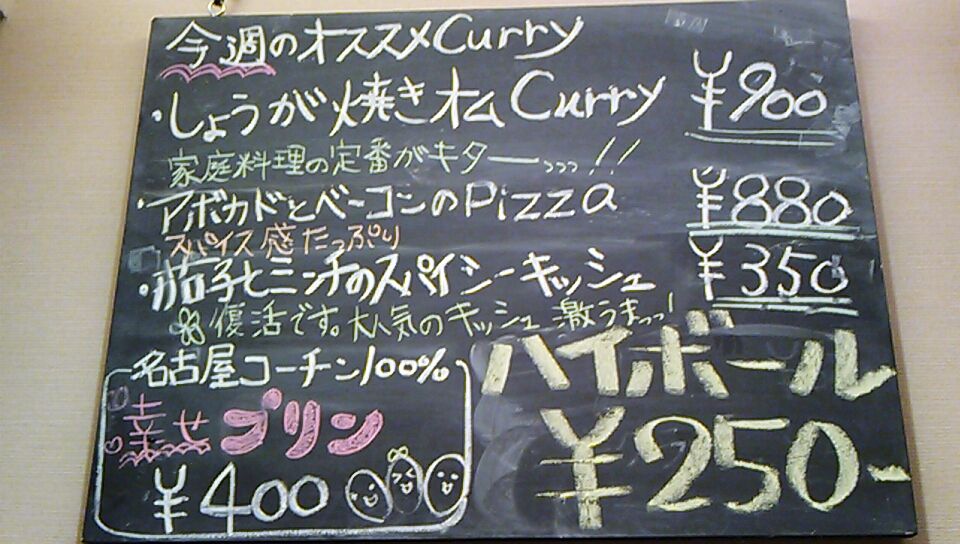 今週のオススメCurry
・しょうが焼きオムCurry ¥900
家庭料理の定番がキターっっっ!!
・アボカドとベーコンのPizza ¥880
スパイス感たっぷり
・茄子とミンチのスパイシーキッシュ ¥350
復活です。大人気のキッシュ激うまっっ!
名古屋コーチン100%
幸せプリン
¥400
ハイボール
¥250-